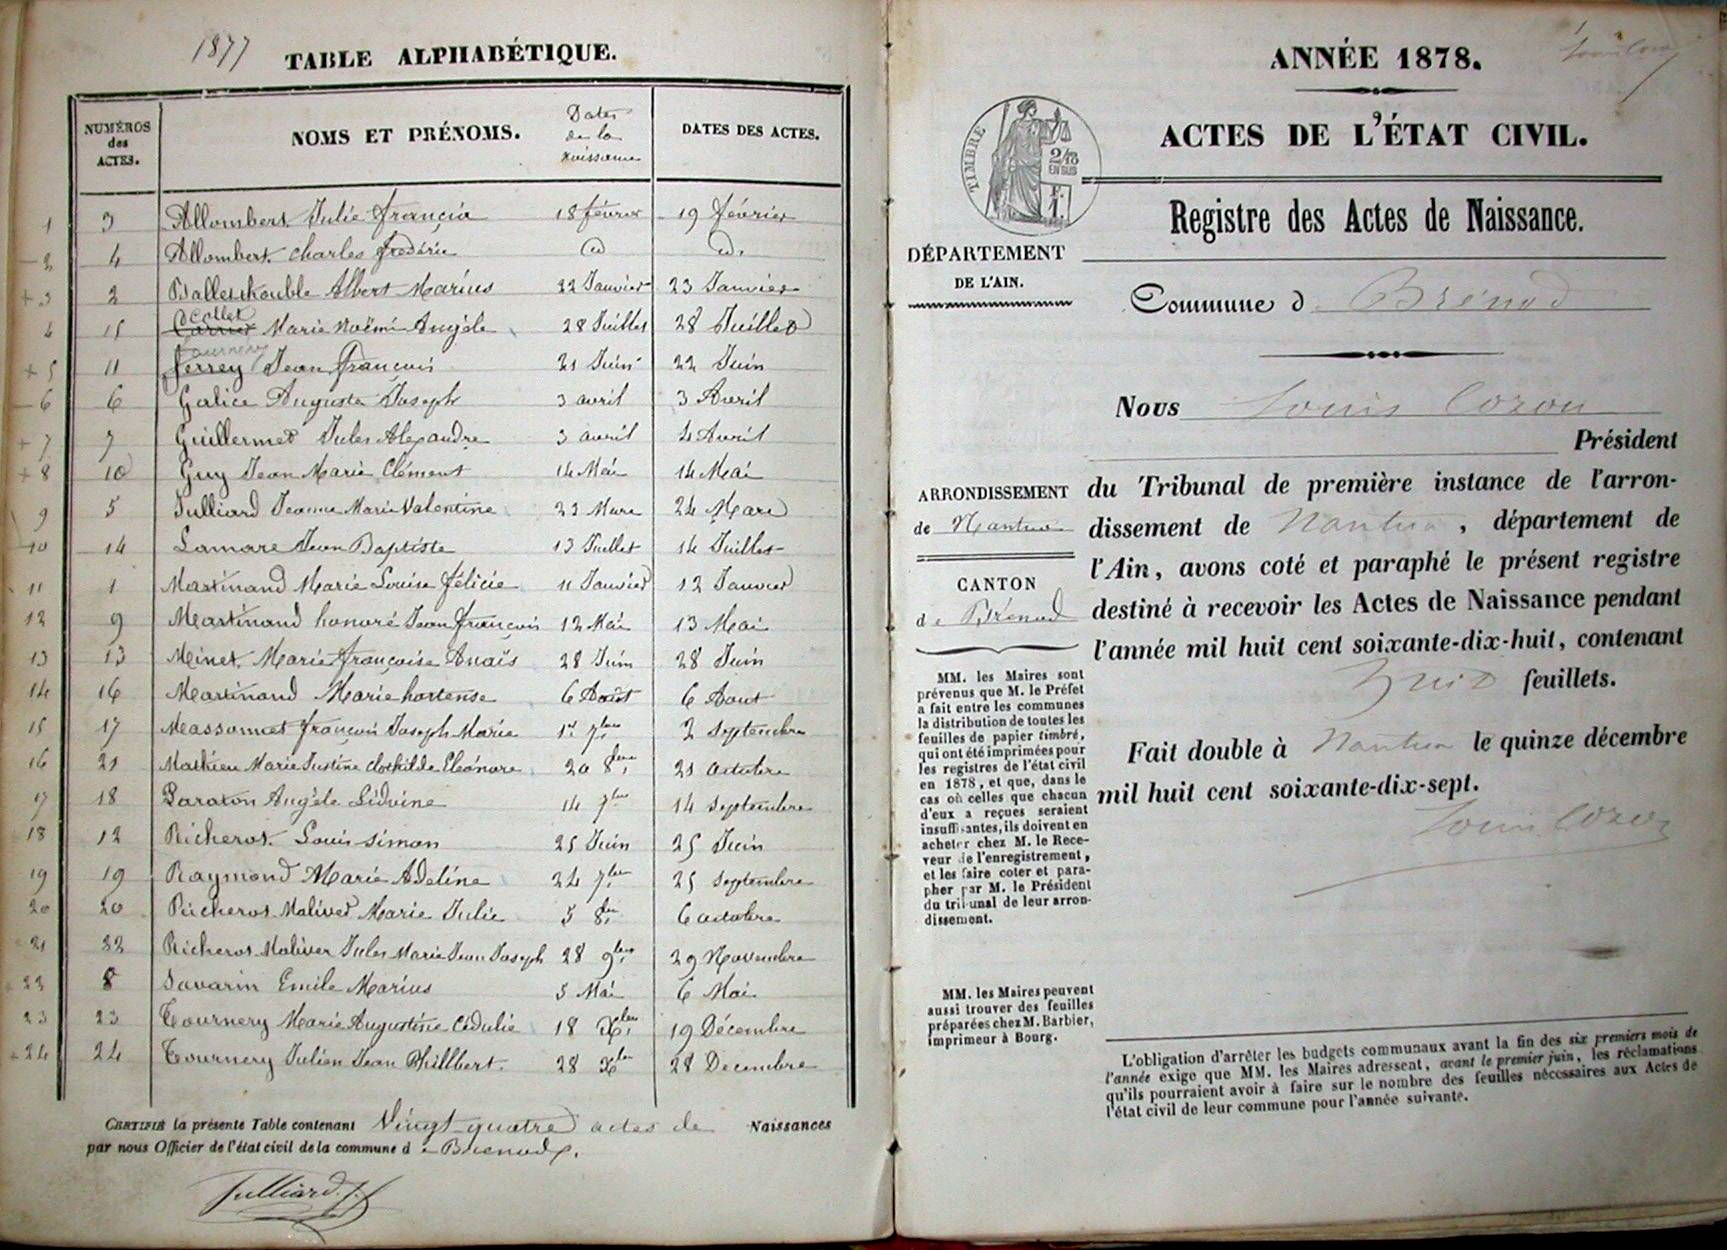 1877
TABLE ALPHABÉTIQUE.
NUMÉROS des ACTES.
NOMS ET PRÉNOMS.
Dates de la naissance
DATES DES ACTES.
1 3 Allombert Julie françia 18 février 19 février
2 4 Allombert charles frédéric id id.
+ 3 2 Balletdhouble Albert Marius 22 Janvier 23 Janvier
4 15 Carrier Collet Marie Noëmi Angèle 28 Juillet 28 Juillet
+ 5 11 ferrey Tournery Jean françois 21 Juin 22 Juin
6 6 Galice Auguste Joseph 3 avril 3 Avril
+ 7 7 Guillermet Jules Alexandre 3 avril 4 Avril
+ 8 10 Guy Jean Marie Clément 14 Mai 14 Mai
9 5 Julliard Jeanne Marie Valentine 23 Mars 24 Mars
10 14 Lamare Jean Baptiste 13 Juillet 14 Juillet
11 1 Martinand Marie Louise félicie 11 Janvier 12 Janvier
12 9 Martinand honoré Jean françois 12 Mai 13 Mai
13 13 Minet Marie françoise Anaïs 28 Juin 28 Juin
14 16 Martinand Marie hortense 6 Août 6 Aout
15 17 Massonnet françois Joseph Marie 1er 7bre 2 Septembre
16 21 Mathieu Marie Justine clothilde Eléonore 20 8bre 21 octobre
17 18 Paraton Angèle Lidvine 14 7bre 14 septembre
18 12 Richerot Louis simon 25 Juin 25 Juin
19 19 Raymond Marie Adeline 24 7bre 25 septembre
20 20 Richerot Malivert Marie Julie 5 8bre 6 octobre
21 22 Richerot Maliver Jules Marie Jean Joseph 28 9bre 29 Novembre
22 8 Savarin Emile Marius 5 Mai 6 Mai
23 23 Tournery Marie Augustine Cédulie 18 Xbre 19 Décembre
+ 24 24 Tournery Julien Jean Phillbert. 28 Xbre 28 Decembre
CERTIFIÉ la présente Table contenant Vingt-quatre actes de Naissances
par nous Officier de l'état civil de la commune d e Brenod.
Julliard. J.
Louis Cozon
ANNÉE 1878.
ACTES DE L'ÉTAT CIVIL.
TIMBRE
2/10
EN SUS
1 F.
Registre des Actes de Naissance.
DÉPARTEMENT
DE L'AIN.
Commune d e Brénod
Nous Louis Cozon
Président
ARRONDISSEMENT
de Nantua
CANTON
de Brénod
du Tribunal de première instance de l'arron-
dissement de Nantua, département de
l'Ain, avons coté et paraphé le présent registre
destiné à recevoir les Actes de Naissance pendant
l'année mil huit cent soixante-dix-huit, contenant
huit feuillets.
Fait double à Nantua le quinze décembre
mil huit cent soixante-dix-sept.
Louis Cozon
MM. les Maires sont
prévenus que M. le Préfet
a fait entre les communes
la distribution de toutes les
feuilles de papier timbré,
qui ont été imprimées pour
les registres de l'état civil
en 1878, et que, dans le
cas où celles que chacun
d'eux a reçues seraient
insuffisantes, ils doivent en
acheter chez M. le Rece-
veur de l'enregistrement,
et les faire coter et para-
pher par M. le Président
du tribunal de leur arron-
dissement.
MM. les Maires peuvent
aussi trouver des feuilles
préparées chez M. Barbier,
imprimeur à Bourg.
L'obligation d'arrêter les budgets communaux avant la fin des six premiers mois de
l'année exige que MM. les Maires adressent, avant le premier juin, les réclamations
qu'ils pourraient avoir à faire sur le nombre des feuilles nécessaires aux Actes de
l'état civil de leur commune pour l'année suivante.